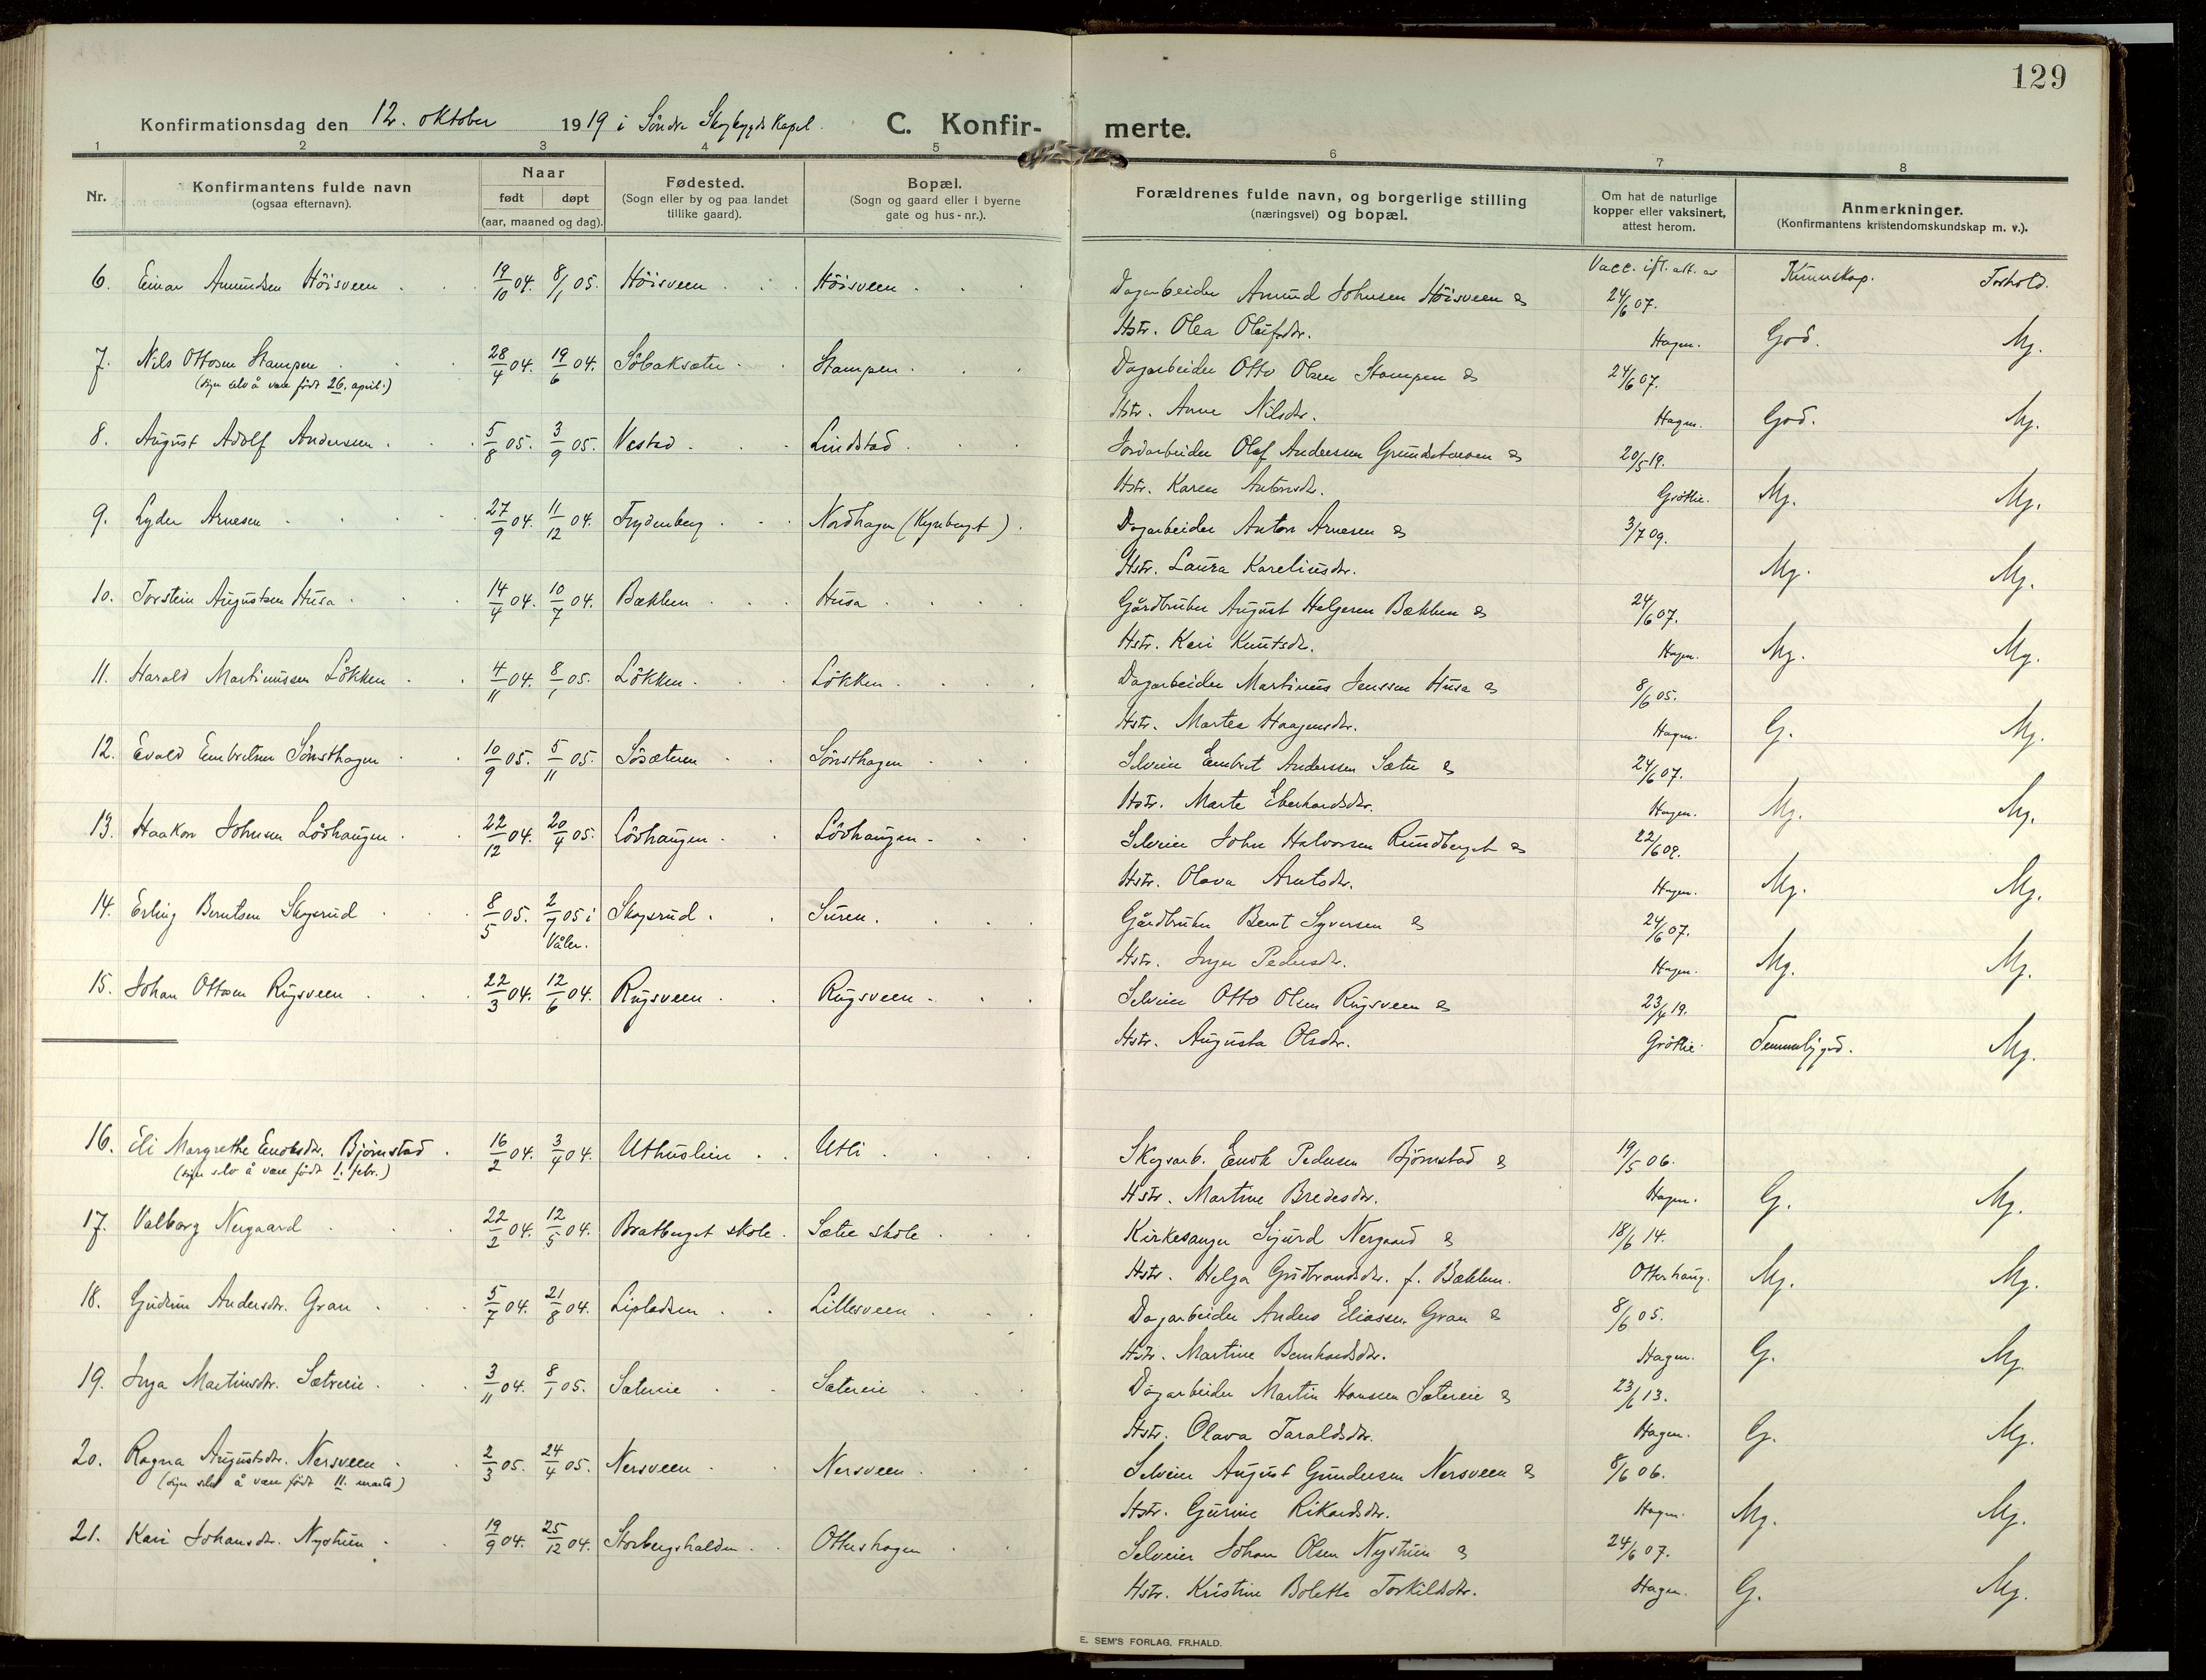 129
Konfirmationsdag den 12. oktober 1919 i Söndre Skogbygds Kapel. C. Konfir- merte.
1 2 3 4 5 6 7 8
Nr.
Konfirmantens fulde navn
(ogsaa efternavn).
Naar
født døpt
(aar, maaned og dag).
Fødested.
(Sogn eller by og paa landet
tillike gaard).
Bopæl.
(Sogn og gaard eller i byerne
gate og hus-nr.).
Forældrenes fulde navn, og borgerlige stilling
(næringsvei) og bopæl.
Om hat de naturlige
kopper eller vaksinert,
attest herom.
Anmerkninger.
(Konfirmantens kristendomskundskap m. v.).
Vacc. ifl. att. av Kunnskap. Forhold.
6. Einar Amundsen Höisveen 19/10 04. 8/1 05. Höisveen Höisveen Dagarbeider Amund Johnsen Höisveen & 24/6 07.
Hstr. Olea Olufsdr. Hagen. God. Mg.
7. Nils Ottosen Stampen 28/4 04. 19/6 04. Söbaksæter Stampen Dagarbeider Otto Olsen Stampen & 24/6 07.
(sign selv å være födt 26. april.)
Hstr. Anne Nilsdr. Hagen. God. Mg.
8. August Adolf Andersen 5/8 05. 3/9 05. Vestad Lindstad Jordarbeider Olof Andersen & 20/5 19.
Hstr. Karen Antonsdr. Gröttie. Mg. Mg.
9. Lyder Arnesen 27/9 04. 11/12 04. Frydenberg Nordhagen (Kynberget) Dagarbeider Anton Arnesen & 3/7 09.
Hstr. Laura Kareliusdr. Mg. Mg.
10. Torstein Augustsen Husa 14/4 04. 10/7 04. Bækken Husa Gårdbruker August Helgesen Bækken & 24/6 07.
Hstr. Kari Knutsdr. Hagen. Mg. Mg.
11. Harald Martinussen Lökken 4/11 04. 8/1 05. Lökken Lökken Dagarbeider Martinus Jenssen Husa & 8/6 05.
Hstr. Martea Haagensdr. Hagen. G. Mg.
12. Evald Embretsen Sönsthagen 10/9 05. 5/11 05. Sösæteren Sönsthagen Selveier Embret Anderssen Sæter & 24/6 07.
Hstr. Marte Eberhardsdr. Hagen. Mg. Mg.
13. Haakon Johnsen Lövhaugen 22/12 04. 20/4 05. Lövhaugen Lövhaugen Selveier John Halvorsen Rundberget & 22/6 09.
Hstr. Olava Arntsdr. Hagen. Mg. Mg.
14. Erling Berntsen Skogsrud 8/5 05. 2/7 05 i Våler. Skogsrud Suren. Gårdbruker Bernt Syversen & 24/6 07.
Hstr. Inger Pedersdr. Hagen. Mg. Mg.
15. Johan Ottosen Rugsveen 22/3 04. 12/6 04. Rugsveen Rugsveen Selveier Otto Olsen Rugsveen & 23/4 19.
Hstr. Augusta Olsdr. Gröttie Temmeliggod. Mg.
16. Eli Margrethe Enoksdr. Björnstad 16/2 04. 3/4 04. Uthuslien Utli Skogsarb. Enok Pedersen Björnstad & 19/5 06.
(sign selv å være födt 1. febr.)
Hstr. Martine Bredesdr. Hagen. G. Mg.
17. Valborg Nergaard 22/2 04. 12/5 04. Bratberget skole Sætre skole Kirkesanger Sigurd Nergaard & 18/6 14.
Hstr. Helga Gudbrandsdr. f. Bækken. Otterhaug. Mg. Mg.
18. Gudrun Andersdr. Gran 5/7 04. 21/8 04. Lipladsen Lillesveen Dagarbeider Anders Eliassen Gran & 8/6 05.
Hstr. Martine Bernhardsdr. Hagen. G. Mg.
19. Inga Martinsdr. Sætreeie 3/11 04. 8/1 05. Sætereie Sætereie Dagarbeider Martin Hanssen Sætereie & 23/6 13.
Hstr. Olava Taraldsdr. Hagen. G. Mg.
20. Ragna Augustsdr. Nersveen 2/3 05. 24/4 05. Nersveen Nersveen Selveier August Gundersen Nersveen & 8/6 06.
(sign selv å være födt 11. marts)
Hstr. Gurine Rikardsdr. Hagen. Mg. Mg.
21. Kari Johansdr. Nystuen 19/9 04. 25/12 04. Storbergshalden Ottershagen Selveier Johan Olsen Nystuen & 24/6 07.
Hstr. Kristine Bolette Torkildsdr. Hagen. G. Mg.
E. SEM'S FORLAG, FR.HALD.